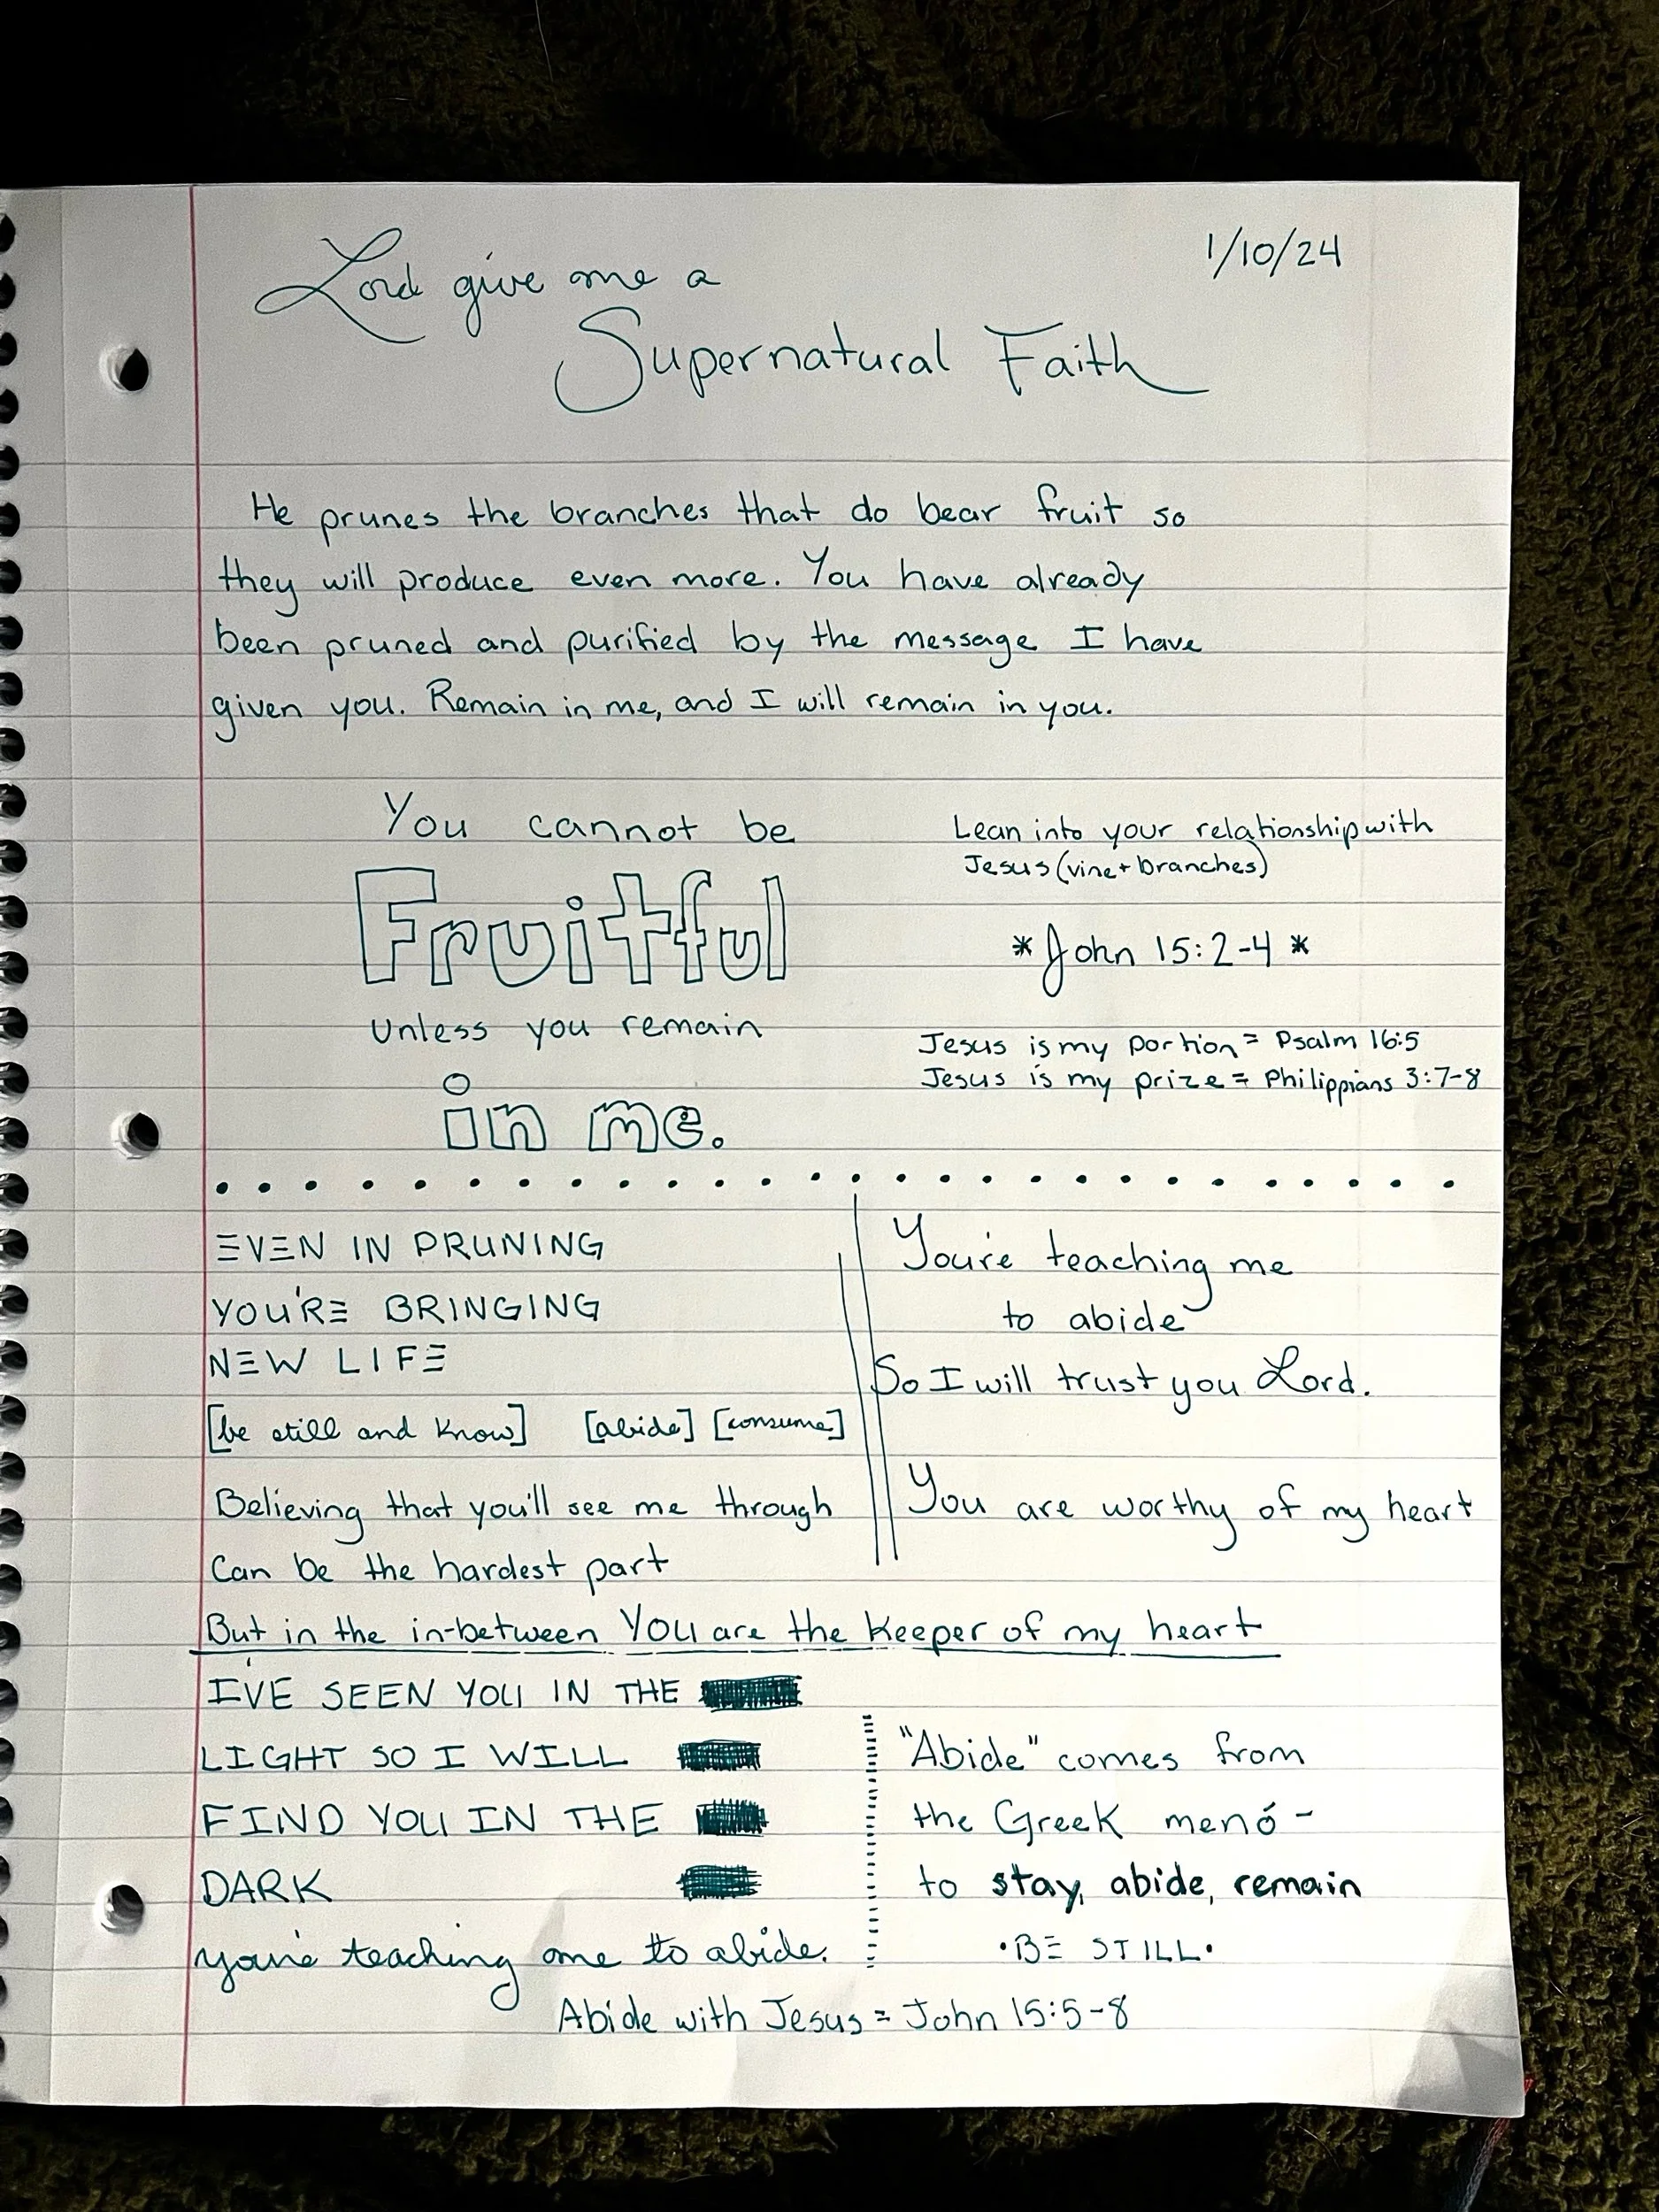 Lord give me a
1/10/24
Supernatural Faith
He prunes the branches that do bear fruit so
they will produce even more. You have already
been pruned and purified by the message I have
given you. Remain in me, and I will remain in you.
You cannot be
Fruitful
unless you remain
in me.
Lean into your relationship with
Jesus (vine + branches)
* John 15:2-4 *
Jesus is my portion = Psalm 16:5
Jesus is my prize = Philippians 3:7-8
EVEN IN PRUNING
YOU'RE BRINGING
NEW LIFE
[be still and know] [abide] [consume]
Believing that you'll see me through
Can be the hardest part
You're teaching me
to abide
So I will trust you Lord.
You are worthy of my heart
But in the in-between YOU are the Keeper of my heart
I'VE SEEN YOU IN THE
LIGHT SO I WILL
FIND YOU IN THE
DARK
you're teaching me to abide.
"Abide" comes from
the Greek menó -
to stay, abide, remain
•BE STILL•
Abide with Jesus = John 15:5-8